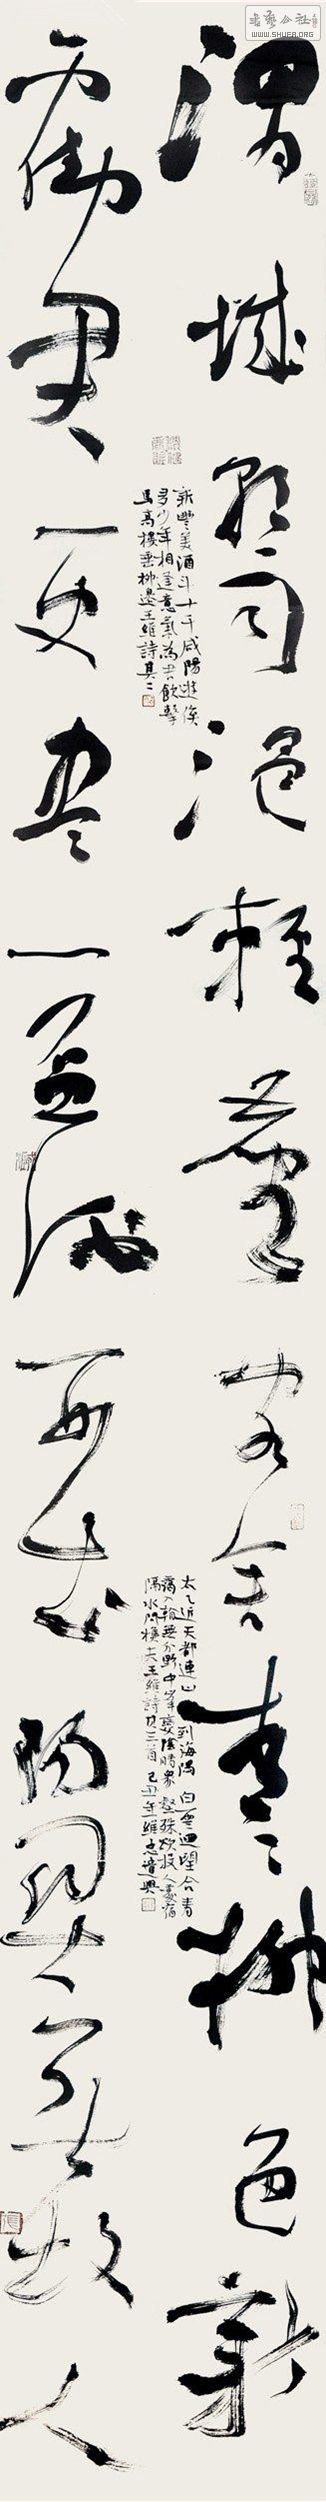 书艺公社
WWW.SHUFA.ORG
渭城朝雨浥輕塵客舍青青柳色新
勸君更盡一杯酒西出陽關無故人
新豐美酒斗十千咸陽遊俠
多少年相逢意氣為君飲繫
馬高樓垂柳邊王維詩其二
太乙近天都連山到海隅白雲迴望合青
靄入看無分野中峰變陰晴眾壑殊欲投人處宿
隔水問樵夫王維詩 己丑年維忠遣興